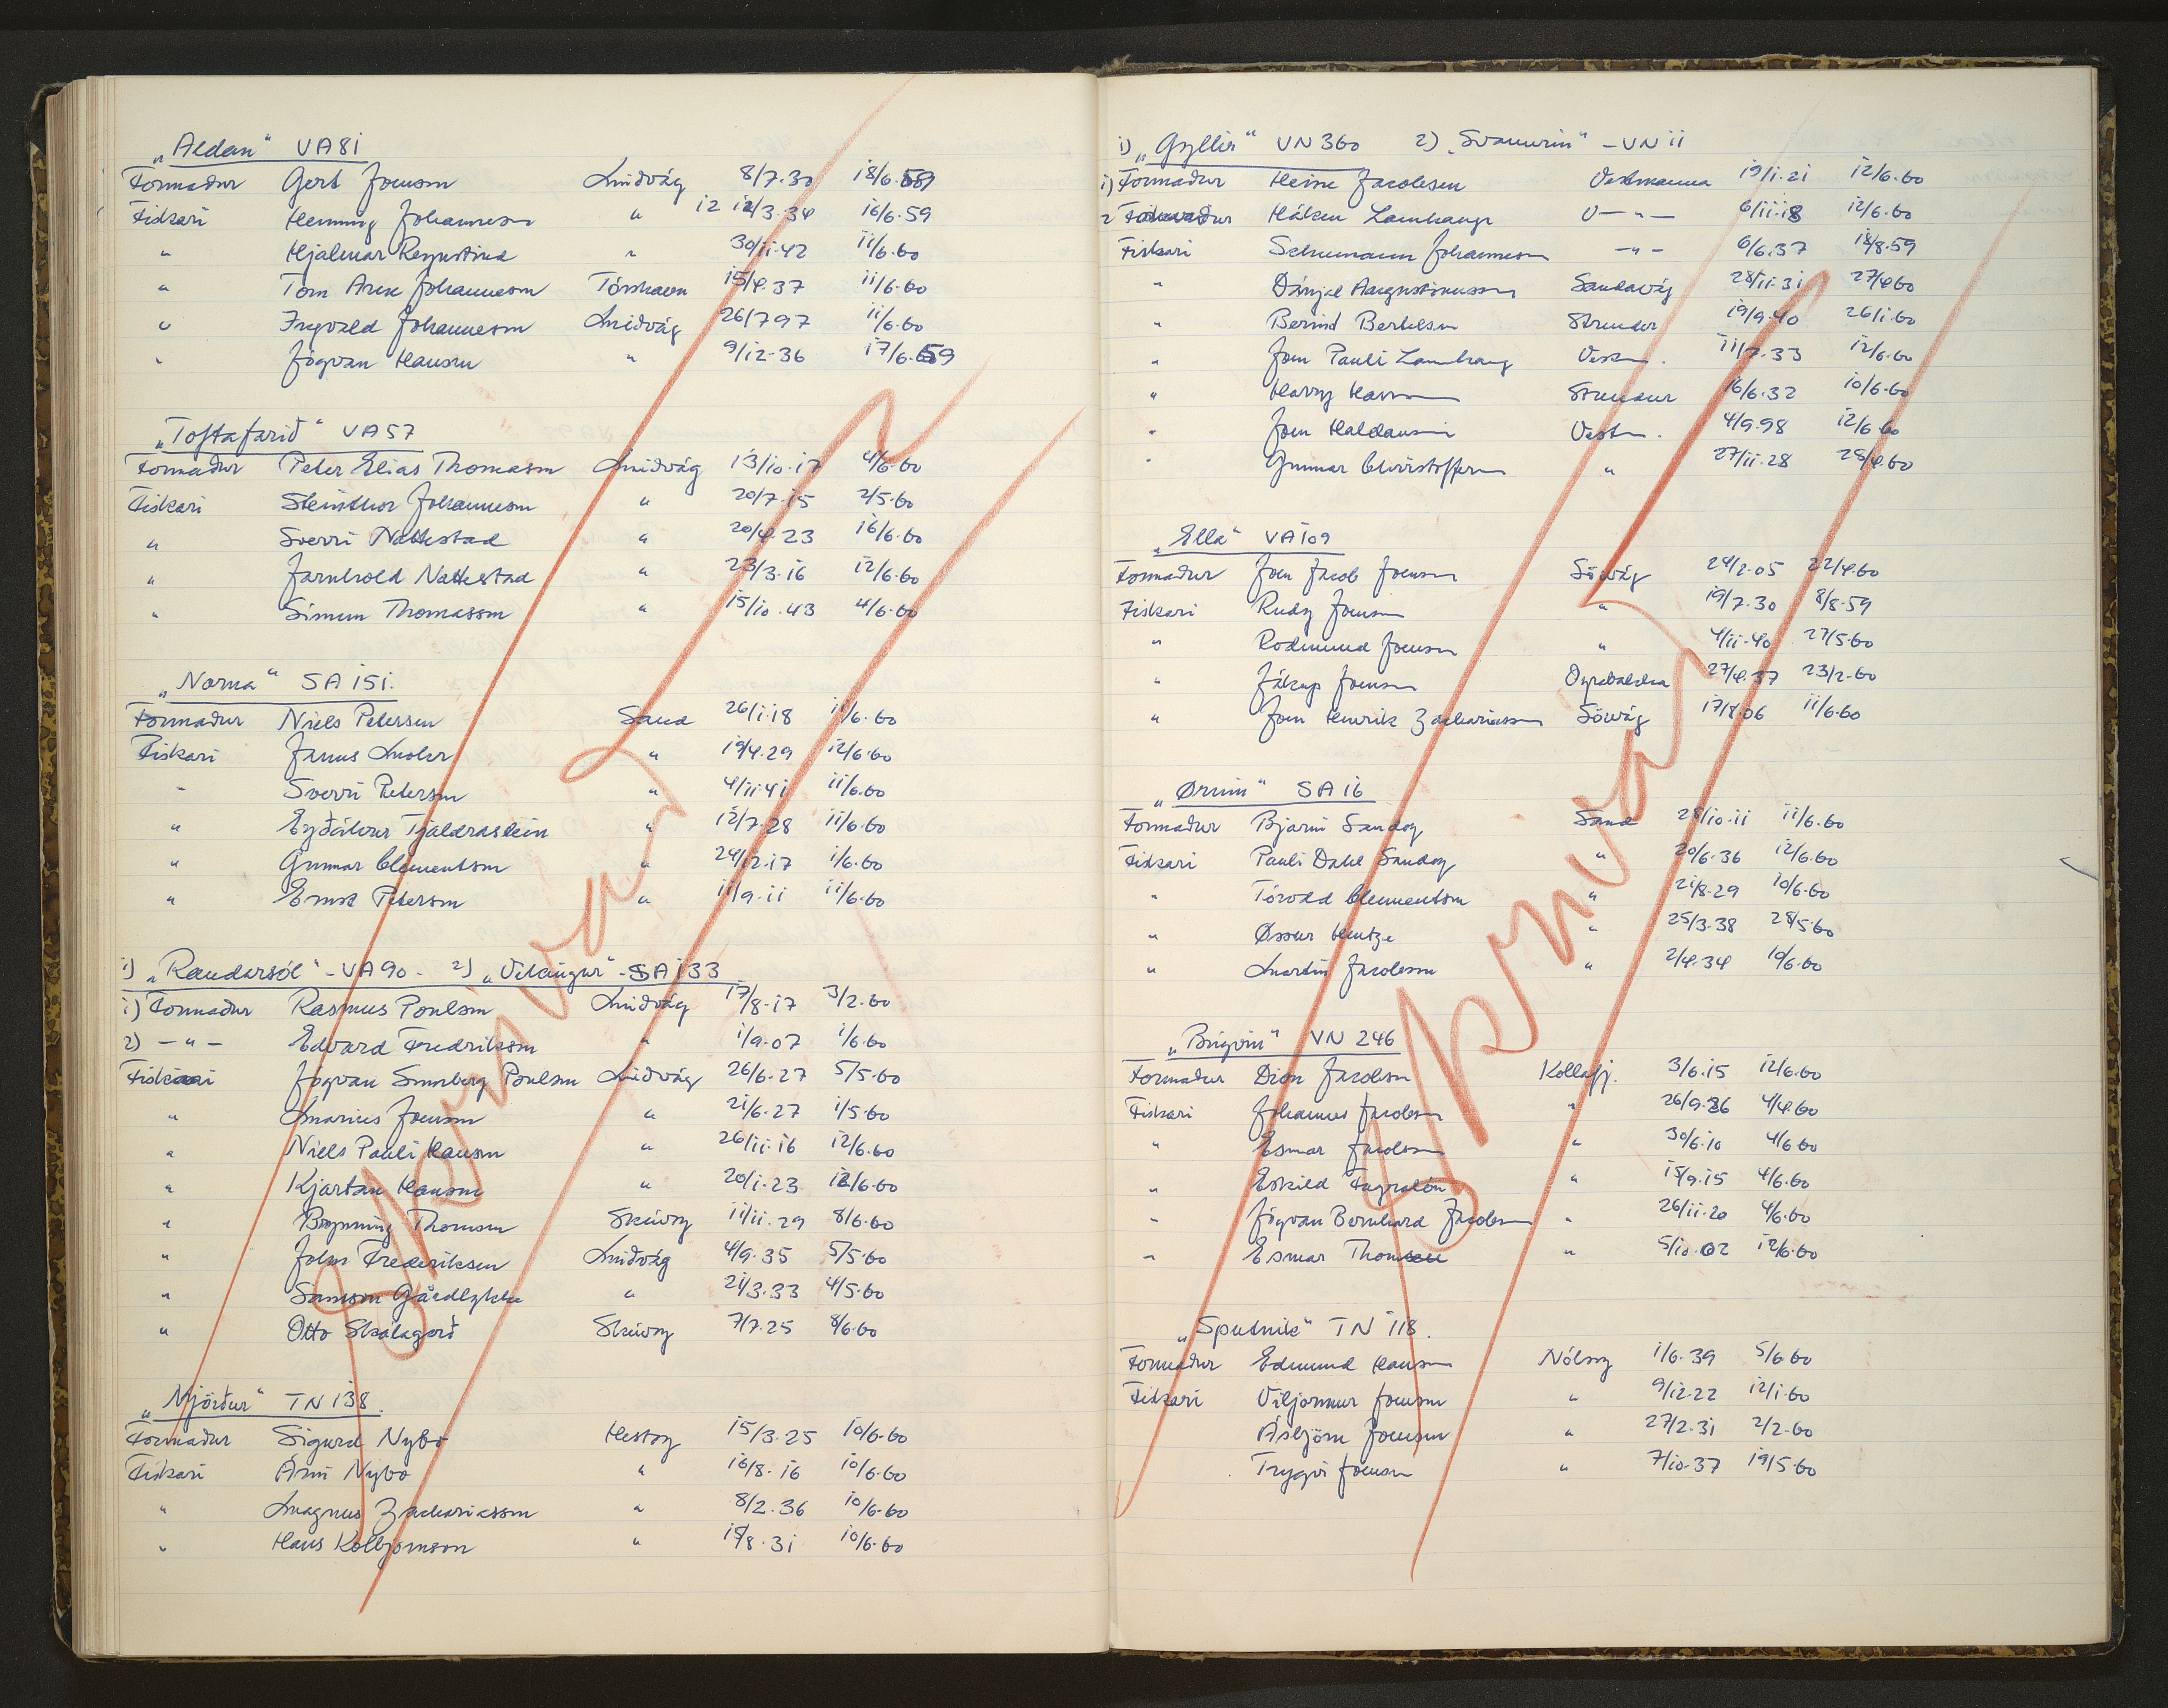 „Aldan“ VA81
Formaður Gert Joensen Miðvág 8/7.30 18/6.59
Fiskari Henning Johannesen " 12 12/3.34 16/6.59
" Hjalmar Reynstind " 30/11.42 11/6.60
" Tom Arne Johannesen Tórshavn 15/4.37 11/6.60
" Ingvald Johannesen Miðvág 26/7 97 11/6.60
" Jógvan Hansen " 9/12.36 17/6.59
„Toftafarið“ VA57
Formaður Peter Elias Thomasen Miðvág 13/10.17 4/6.60
Fiskari Steinthor Johannesen " 20/7.15 2/5.60
" Sverri Nattestad " 20/4.23 16/6.60
" Jarnhold Nattestad " 23/3.16 12/6.60
" Simun Thomassen " 15/10.43 4/6.60
„Norna“ SA 151.
Formaður Niels Petersen Sand 26/1.18 11/6.60
Fiskari Janus Midler " 19/4.29 12/6.60
" Sverri Petersen " 4/11.41 11/6.60
" Eyðálvur Tjaldrastein " 12/7.28 11/6.60
" Gunnar Clementsen " 24/12.17 1/6.60
" Ernst Petersen " 11/9.11 11/6.60
1) „Reudarsól“ - VA90 - 2) „Vikingur“ - SA 133
1) Formaður Rasmus Poulsen Miðvág 17/8.17 3/2.60
2) - " - Edvard Fredriksen " 1/9.07 1/6.60
Fiskari Jógvan Sunnberg Poulsen Miðvág 26/6.27 5/5.60
" Marius Joensen " 21/6.27 1/5.60
" Niels Pauli Hansen " 26/11.16 12/6.60
" Kjartan Hansen " 20/1.23 12/6.60
" Brynming Thomsen Skúvoy 11/11.29 8/6.60
" John Frederiksen Miðvág 4/9.35 5/5.60
" Samson Gárdlykke " 21/3.33 4/5.60
" Otto Skálagerð Skúvoy 7/7.25 8/6.60
„Njörður“ TN 138.
Formaður Sigurd Nybo Hestoy 15/3.25 10/6.60
Fiskari Árni Nybo " 16/8.16 10/6.60
" Magnus Zachariassen " 8/2.36 10/6.60
" Hans Kolbjørnson " 15/8.31 10/6.60
Skrivað
1) „Gyllir“ VN 360 2) „Svanurin“ - VN 11
1) Formaður Heine Jacobsen Vestmanna 19/1.21 12/6.60
2 Formaður Hákun Lamhauge V- " - 6/11.18 12/6.60
Fiskari Schumann Johannesen - " - 6/6.37 18/8.59
" Dánjal Augustinussen Sandavág 28/11.31 27/4.60
" Bernd Bertelsen Strendur 19/9.40 26/1.60
" Joen Pauli Lamhauge Vestm. 11/7.33 12/6.60
" Harry Hansen Strendur 16/6.32 10/6.60
" Joen Haldansen Vestm. 4/9.98 12/6.60
" Gunnar Christoffersen " 27/11.28 28/4.60
„Ella“ VA109
Formaður Joen Jacob Joensen Sörvág 24/2.05 22/4.60
Fiskari Rudy Joensen " 19/7.30 8/8.59
" Rodmund Joensen " 4/11.40 27/5.60
" Jákup Joensen 27/4.37 23/2.60
" Joen Henrik Zachariassen Sörvág 17/8.06 11/6.60
„Ørnin“ SA 16
Formaður Bjarni Sandoy Sand 28/10.11 11/6.60
Fiskari Pauli Dahl Sandoy " 20/6.36 12/6.60
" Tóródd Clementsen " 21/8.29 10/6.60
" Øssur Hentze " 25/3.38 28/5.60
" Martin Jacobsen " 2/4.34 10/6.60
„Brúgvin“ VN 246
Formaður Dion Jacobsen Kollafj. 3/6.15 12/6.60
Fiskari Johannes Jacobsen " 26/9.26 4/4.60
" Esmar Jacobsen " 30/6.10 4/6.60
" Eskild Fagradón " 15/9.15 4/6.60
" Jógvan Bernhard Jacobsen " 26/11.20 4/6.60
" Esmar Thomsen " 5/10.02 12/6.60
„Sputnik“ TN 118.
Formaður Edmund Hansen Nólsoy 1/6.39 5/6.60
Fiskari Viljormur Joensen " 9/12.22 12/1.60
Ásbjörn Joensen " 27/2.31 2/2.60
Trygvi Joensen " 7/10.37 19/5.60
Skrivað